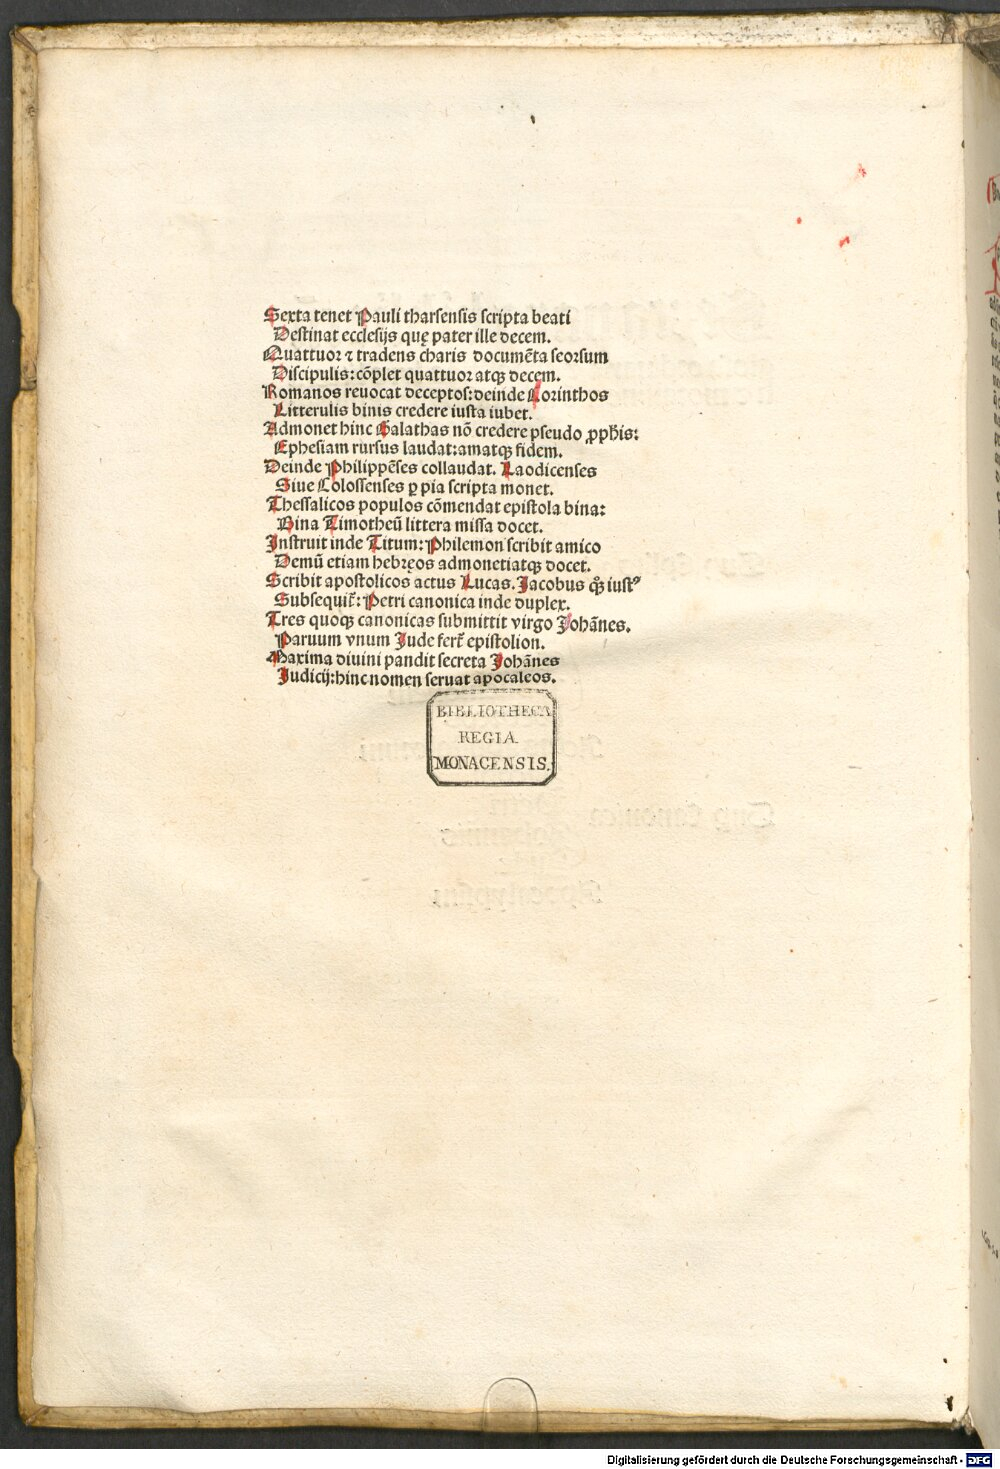 Sexta tenet Pauli tharsensis scripta beati
Destinat ecclesijs quę pater ille decem.
Quattuor ⁊ tradens charis documẽta seorsum
Discipulis: cõplet quattuor atqꝫ decem.
Romanos reuocat deceptos: deinde Corinthos
Litterulis binis credere iusta iubet.
Admonet hinc Galathas nõ credere pseudo ꝓph̃is:
Ephesiam rursus laudat: amatqꝫ fidem.
Deinde Philippẽses collaudat. Laodicenses
Siue Colossenses ꝑ pia scripta monet.
Thessalicos populos cõmendat epistola bina:
Bina Timotheũ littera missa docet.
Instruit inde Titum: Philemon scribit amico
Demũ etiam hebręos admonetiatqꝫ docet.
Scribit apostolicos actus Lucas. Jacobus qͦꝫ iustꝰ
Subsequit᷑: Petri canonica inde duplex.
Tres quoqꝫ canonicas submittit virgo Johãnes.
Paruum vnum Jude fert᷑ epistolion.
Maxima diuini pandit secreta Johãnes
Judicij: hinc nomen seruat apocaleos.
BIBLIOTHECA
REGIA
MONACENSIS.
Digitalisierung gefördert durch die Deutsche Forschungsgemeinschaft - DFG